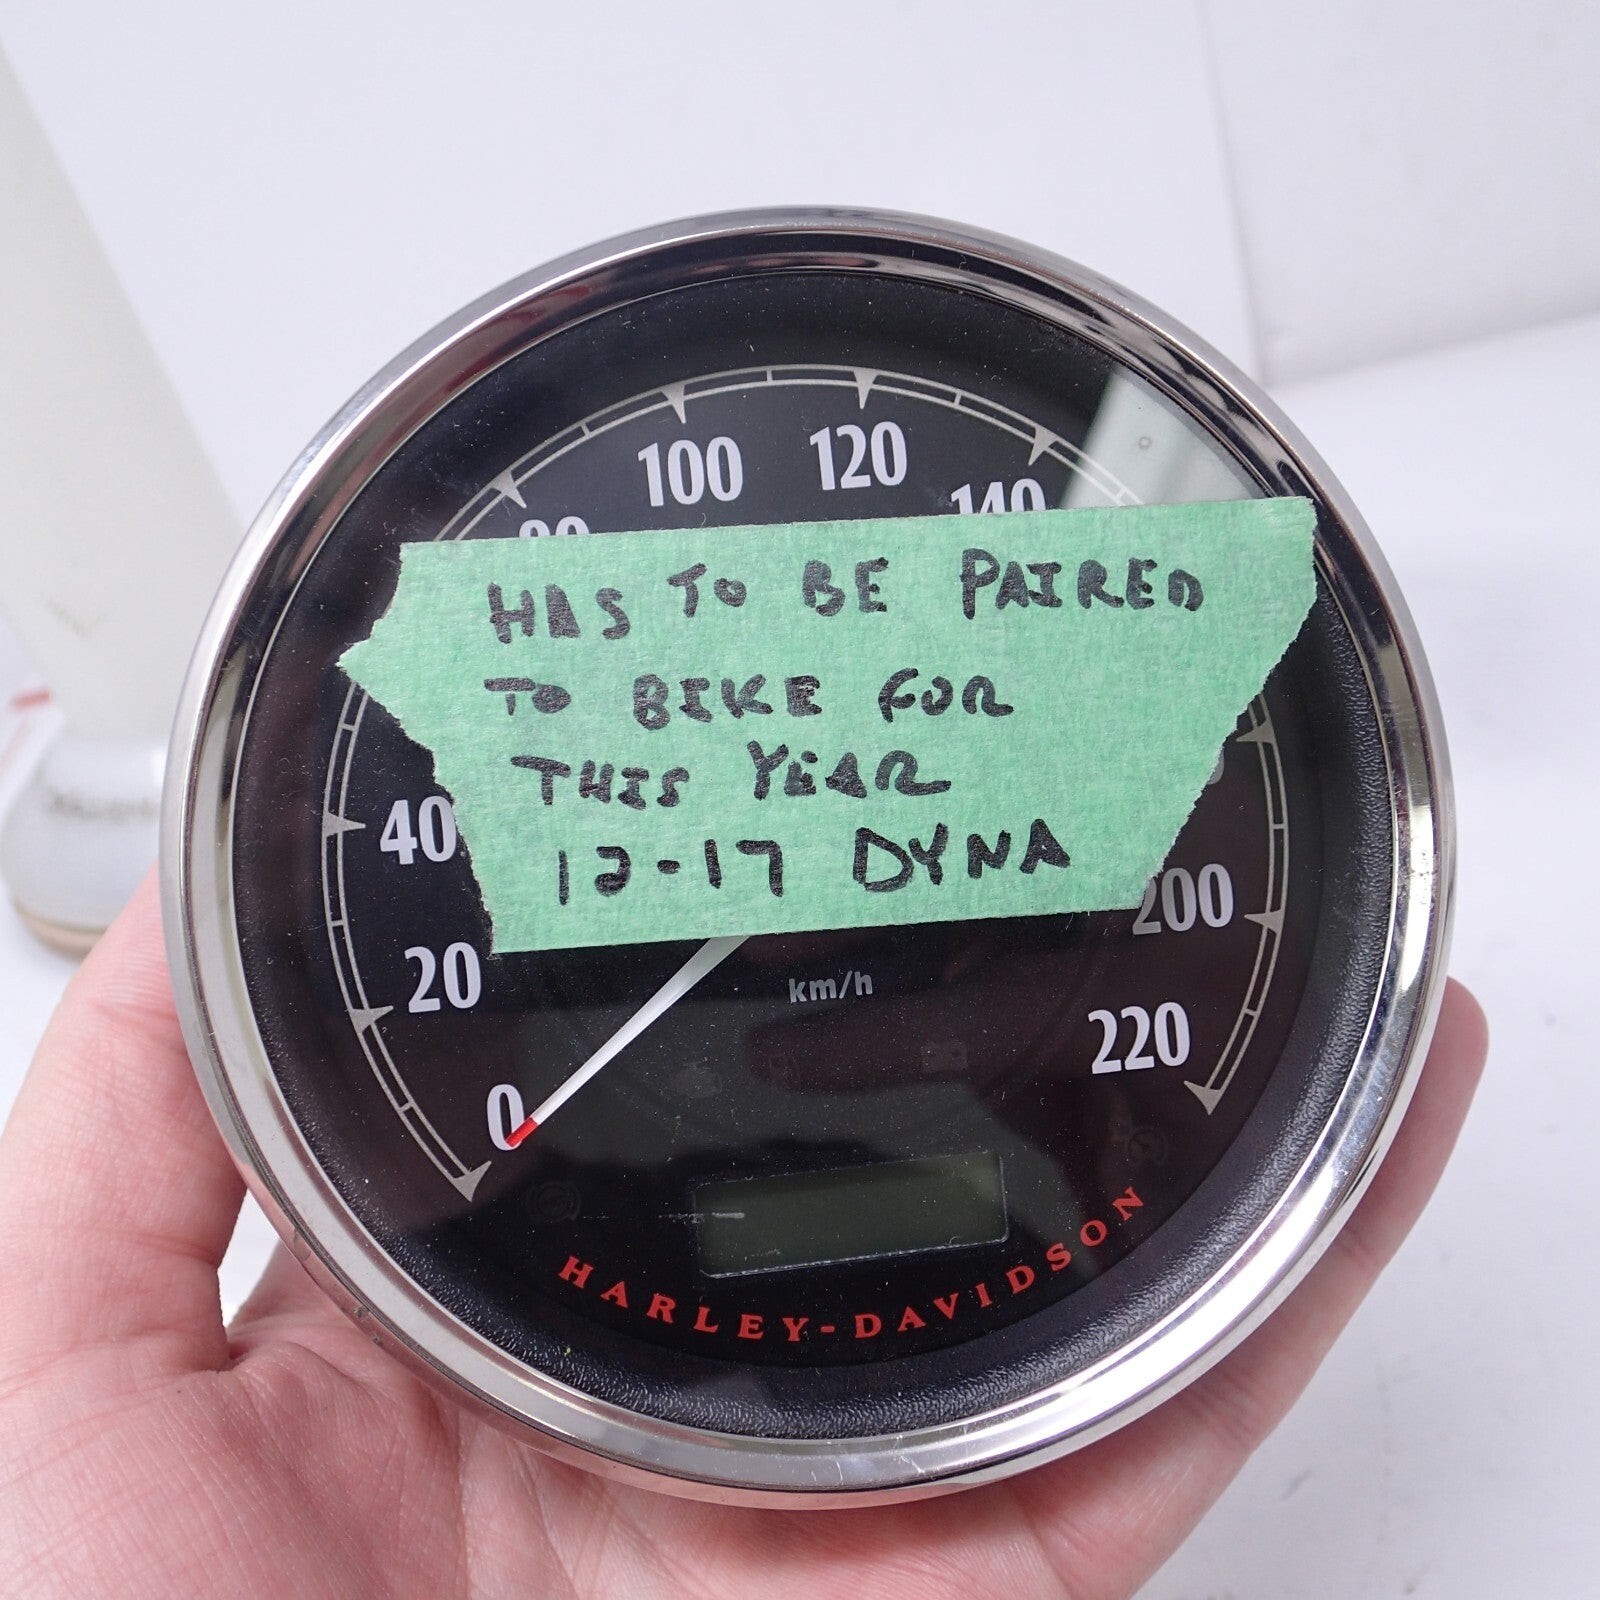 100
120
140
80
HAS TO BE PAIRED
TO BIKE FOR
THIS YEAR
12-17 DYNA
40
200
20
km/h
220
0
HARLEY-DAVIDSON